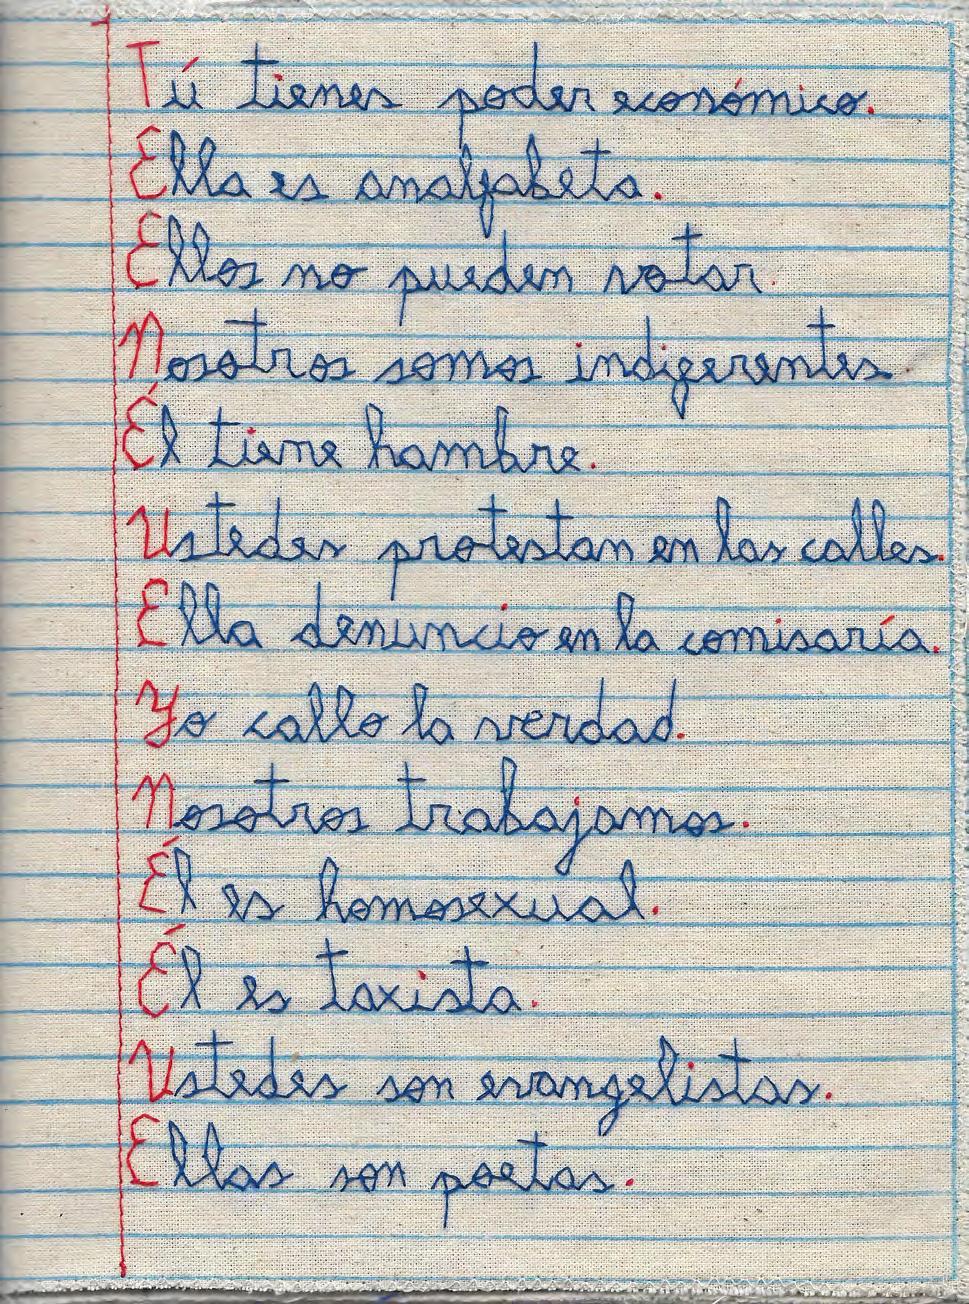 Tú tienes poder económico.
Ella es analfabeta.
Ellos no pueden votar.
Nosotros somos indigerentes.
Él tiene hambre.
Ustedes protestan en las calles.
Ella denuncio en la comisaría.
Yo callo la verdad.
Nosotros trabajamos.
Él es homosexual.
Él es taxista.
Ustedes son evangelistas.
Ellas son poetas.